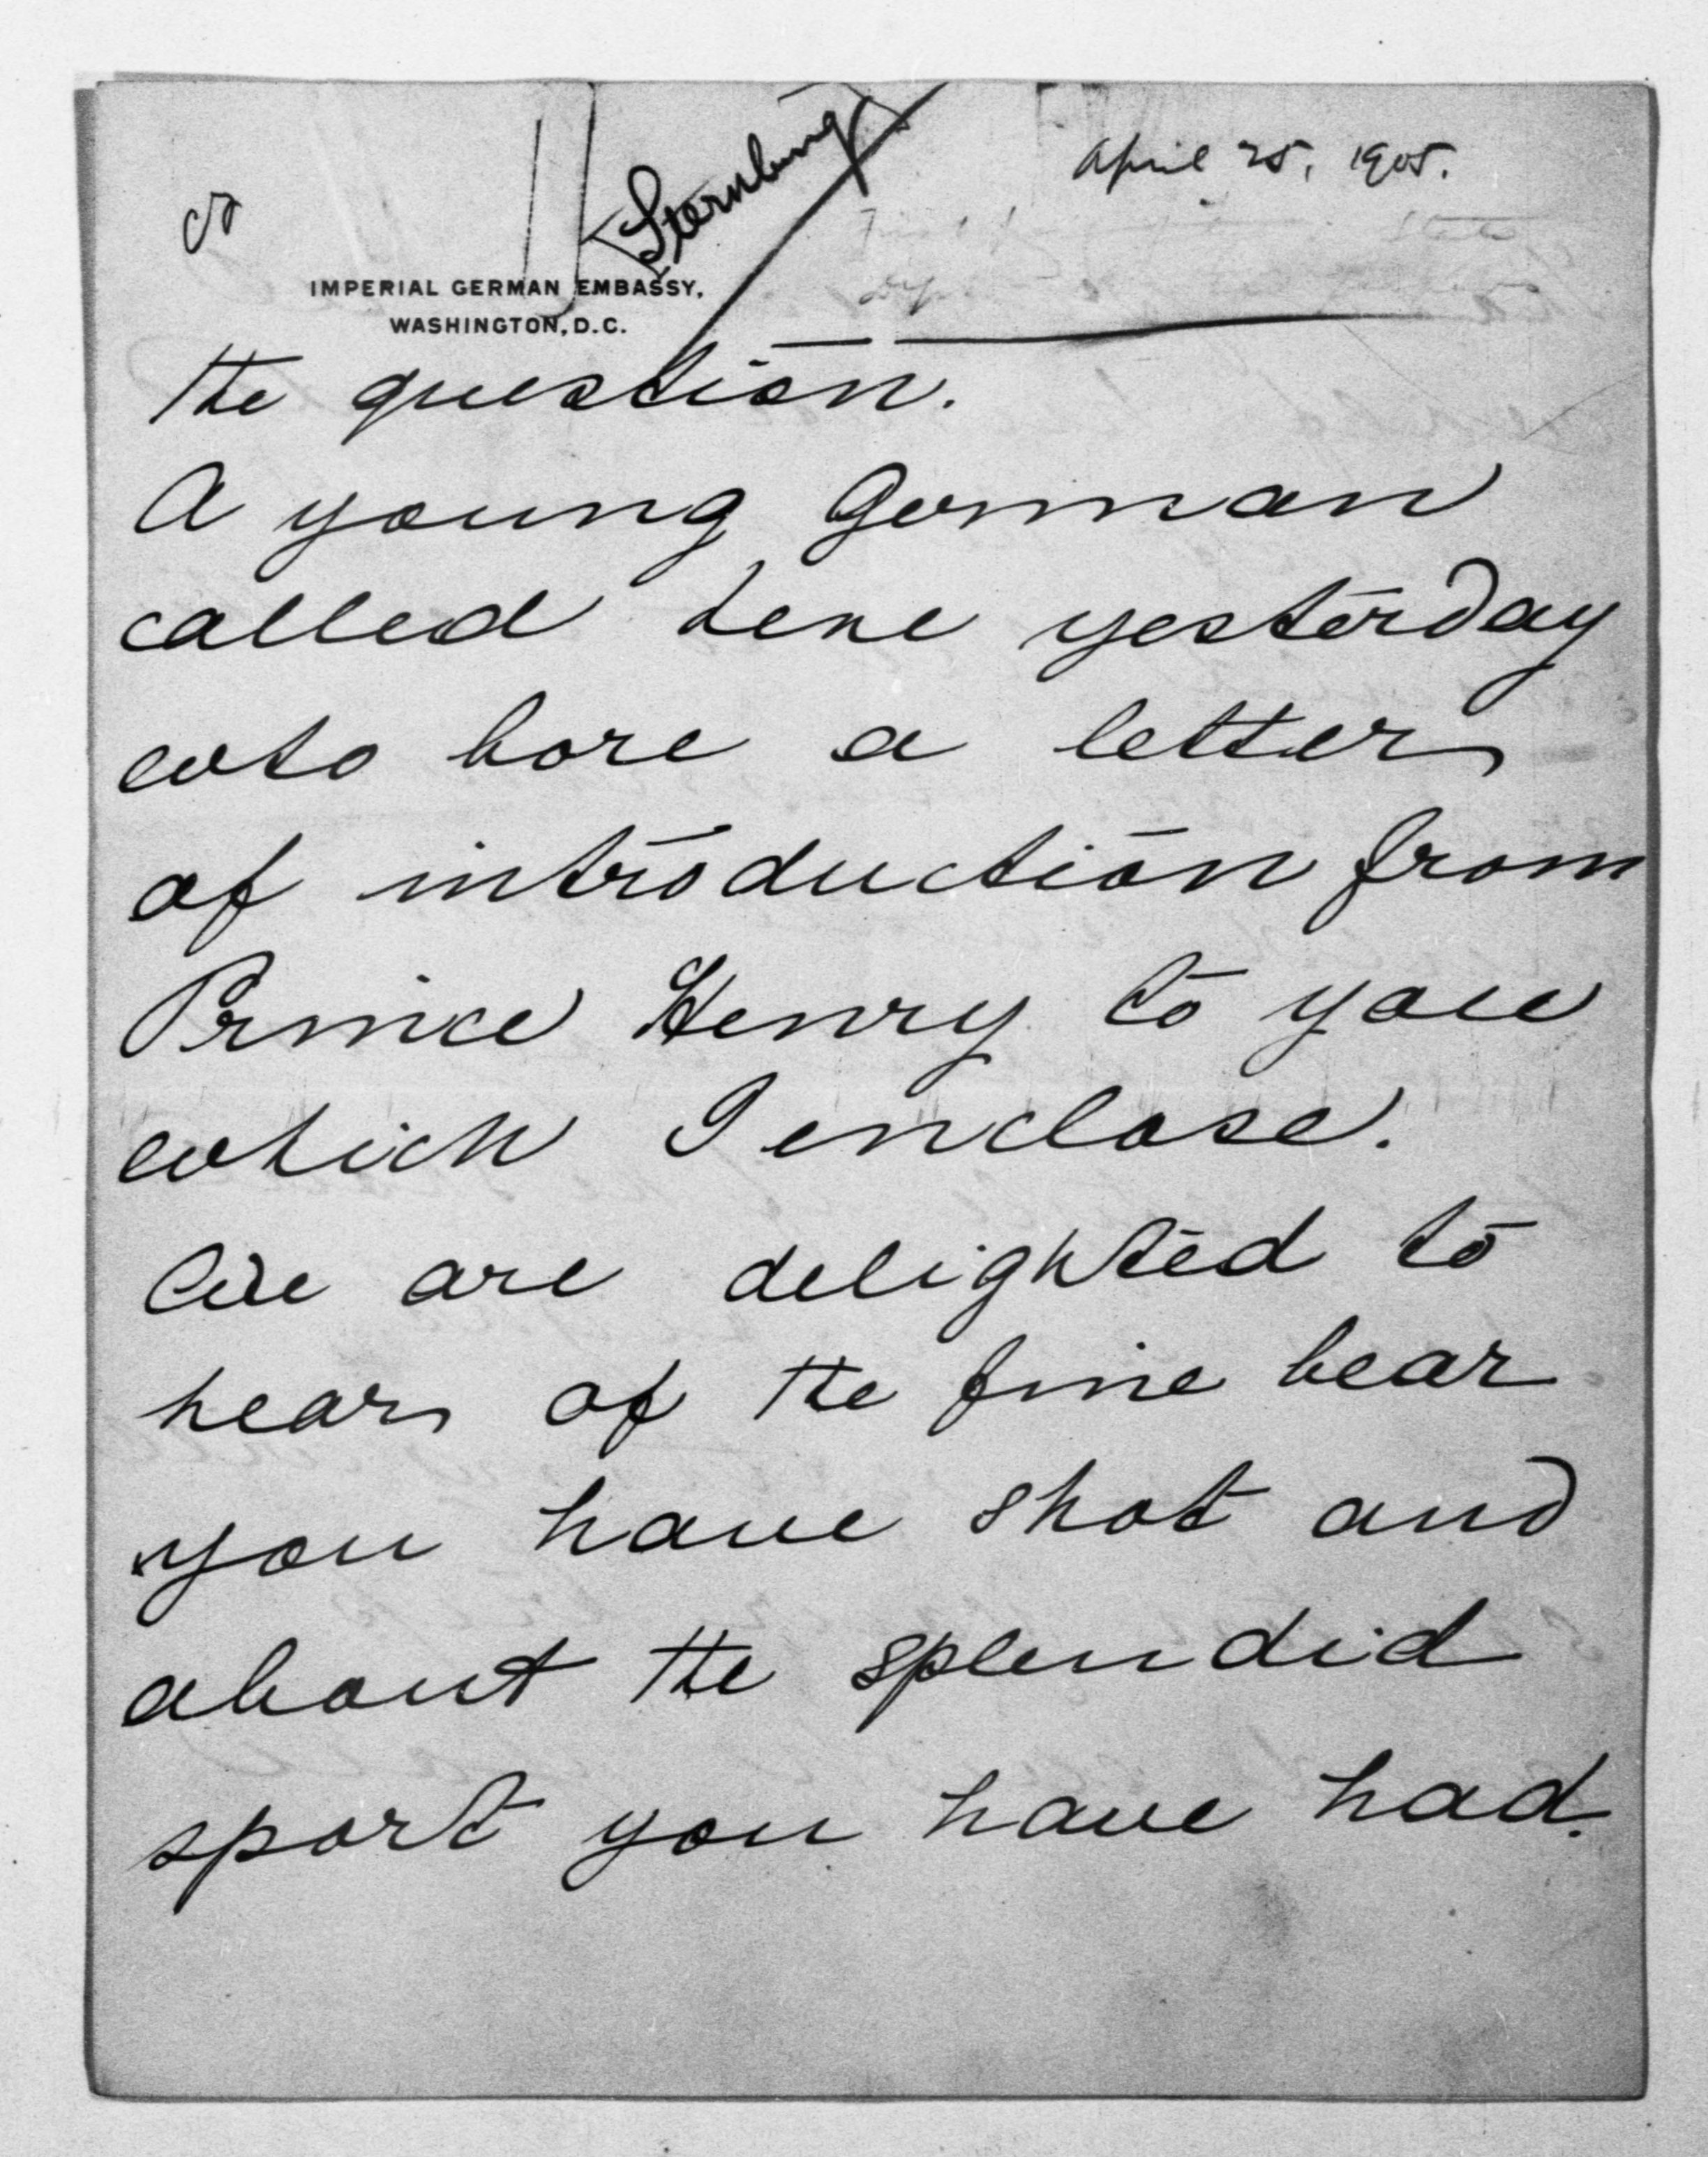 [Sternburg]
April 25, 1905.
IMPERIAL GERMAN EMBASSY,
WASHINGTON, D.C.
the question.
A young German
called here yesterday
who bore a letter
of introduction from
Prince Henry to you
which I enclose.
We are delighted to
hear of the fine bear
you have shot and
about the splendid
sport you have had.